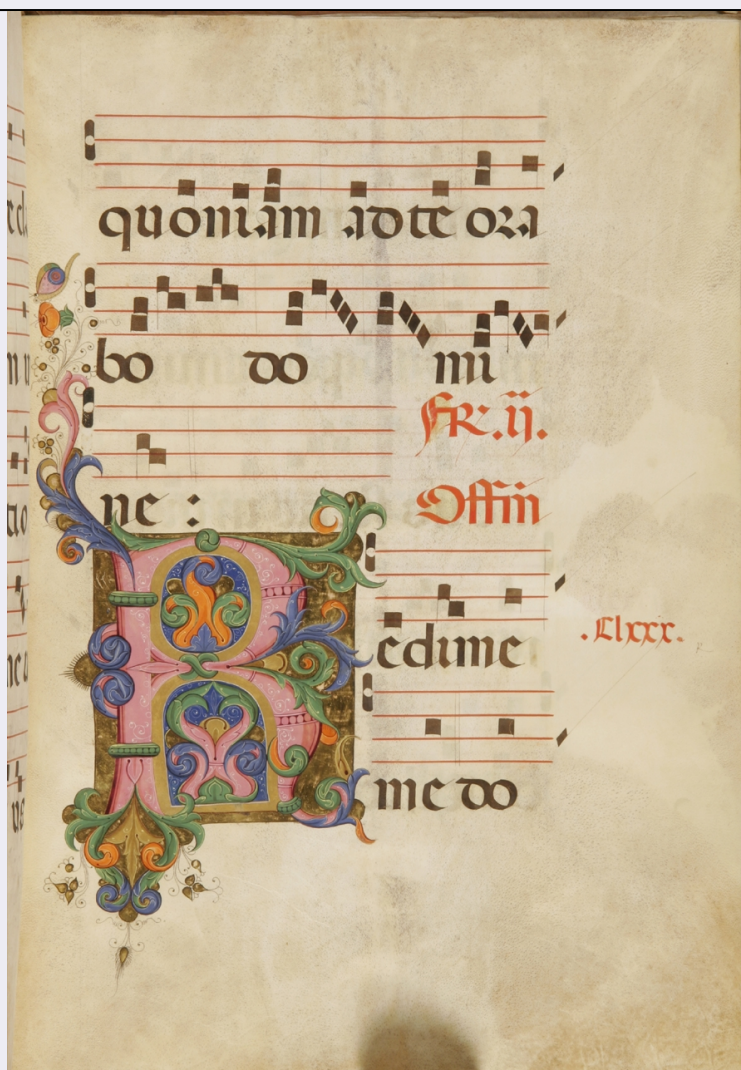 quoniam ad te ora
bo do mi
FR. ij.
ne : Offm
Redime
. Clxxx.
me do